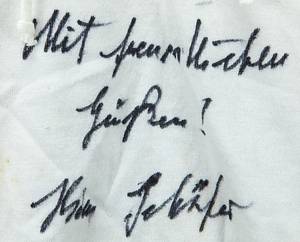 Mit freundlichen
Grüßen!
Schäfer